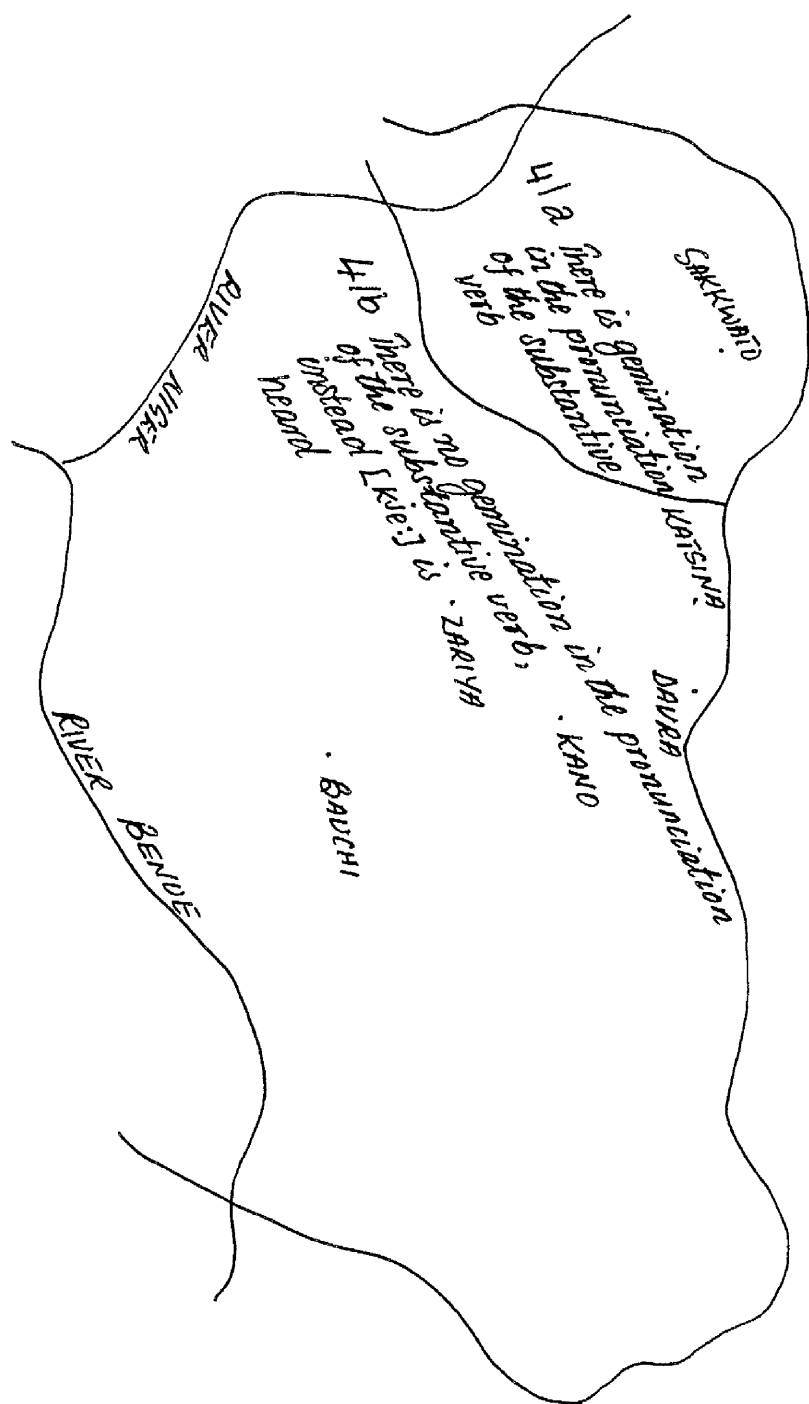 SAKKWATO
41a There is gemination
in the pronunciation
of the substantive
verb
KATSINA
DAURA
41b There is no gemination in the pronunciation
of the substantive verb,
instead [kje:] is
heard
ZARIYA
KANO
BAUCHI
RIVER NIGER
RIVER BENUE